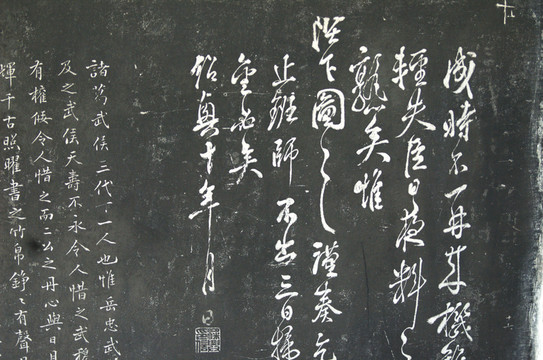 成時不再来機難
輕失臣日夜料之
熟矣惟
陛下圖之謹奏乞
止班師 不出三日掃
金必矣
紹興十年 月 日
諸葛武侯三代下一人也惟岳忠武
及之武侯天壽不永令人惜之武穆
有權佞令人惜之而二公之丹心與日月
輝千古照曜書之竹帛錚々有聲